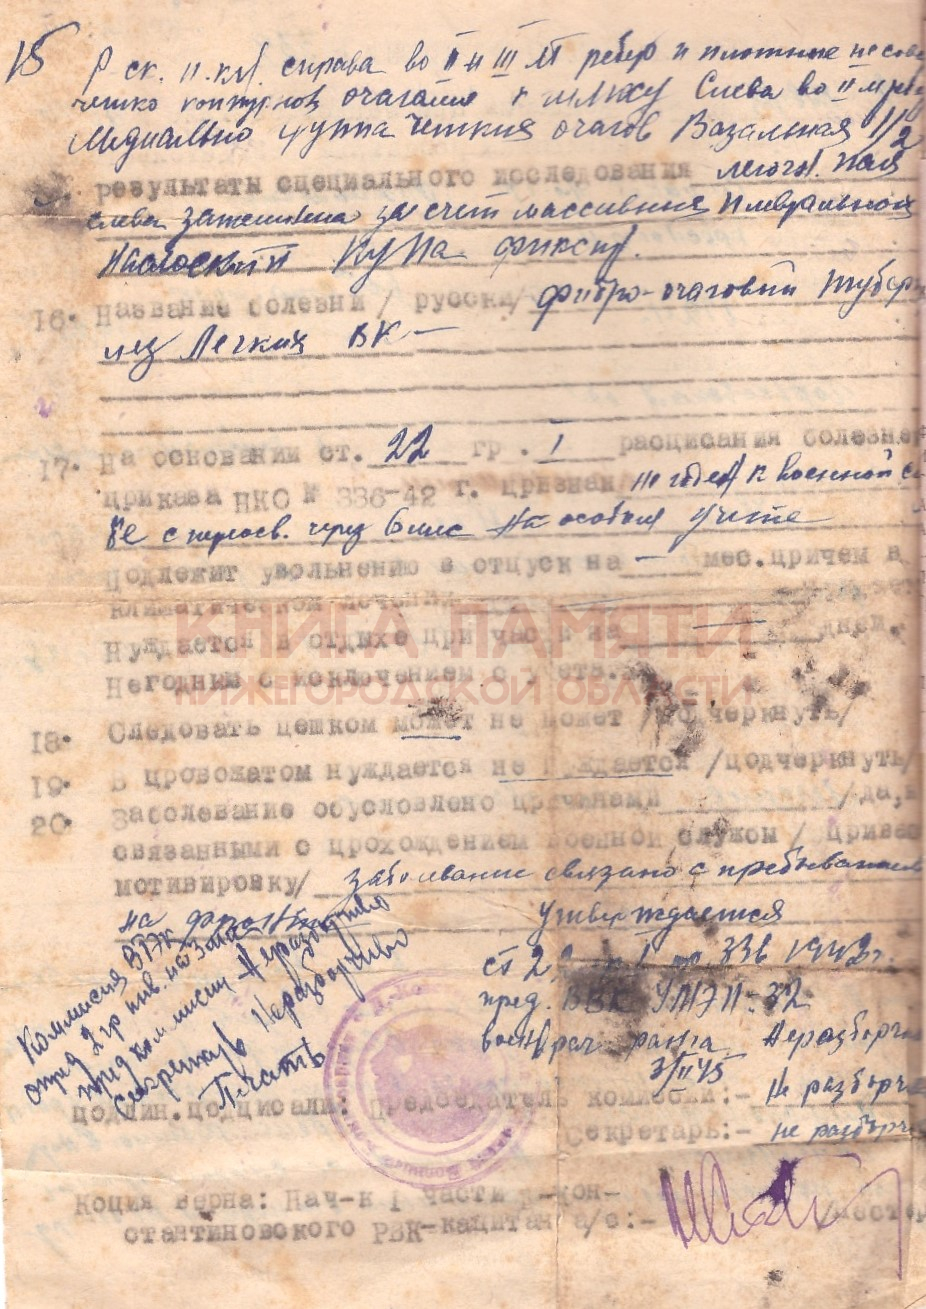 15 R ск. гр. кл. справа во II и III м/ ребер и плотные
четко контурнов очагами
Медиально группа четких очагов Базальная 1/2
результаты специального исследования легочн. поля
слева затемнена за счет массивных плевральных
наслоений Купа фиксир.
16. Название болезни / русски/ фибро-очаговый тубер
лез Легких ВК —
17. На основании ст. 22 гр. I расписания болезне
приказа НКО № 336-42 г. признан не годен к военной с
бе с переосв. через 6 мес на особом учете
Подлежит увольнению в отпуск на — мес. причем в
климатическом лечении
Нуждается в отдыхе при части на — дней.
КНИГА ПАМЯТИ
НИЖЕГОРОДСКОЙ ОБЛАСТИ
Негодным с исключением с учета.
18. Следовать пешком может не может /подчеркнуть/
19. В провожатом нуждается не нуждается /подчеркнуть/
20. Заболевание обусловлено причинами /да,
связанными с прохождением военной службы / приве
мотивировку/ заболевание связано с пребыванием
на фронте
Утверждается
ст 22 гр I пр 336 1942г.
пред. ВВК УМЭП-32
военврач ранга Неразборчи
3/II 45
Комиссия ВТЭК
опред 2 гр инв. на
пред комиссии - Неразборчиво
Секретарь Неразборчиво
Печать
подлин. подписали: Председатель комиссии:- Не разборч
Секретарь:- не разборч
Копия верна: Нач-к I части Д-Кон-
стантиновского РВК-капитан а/с:-